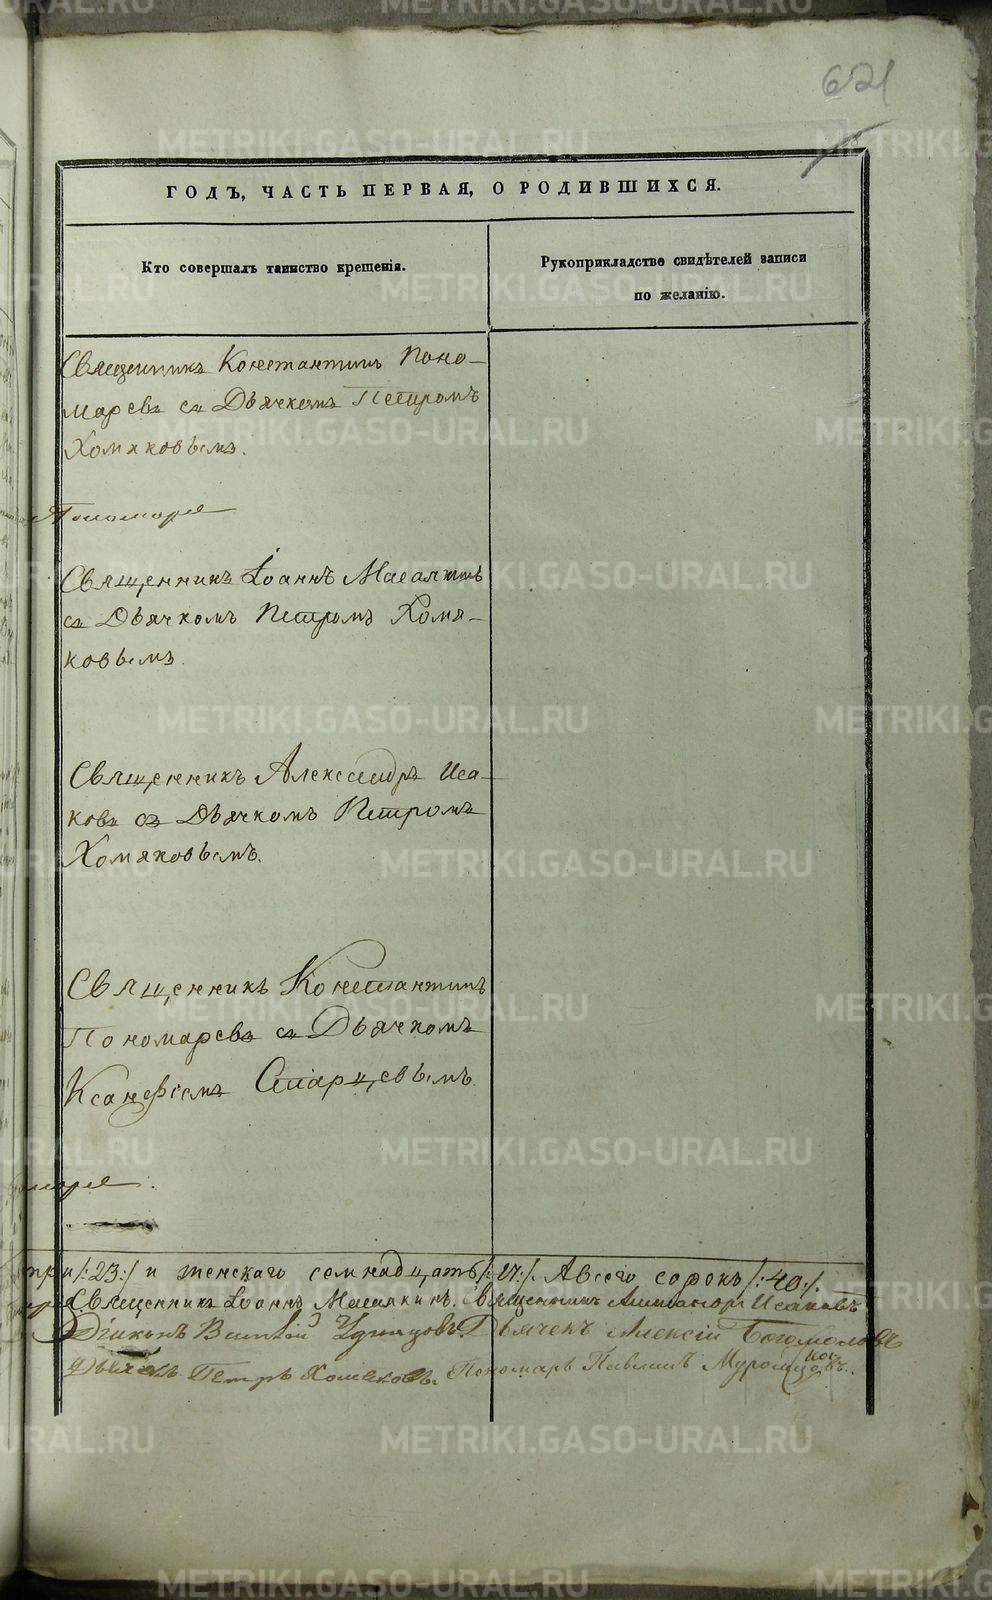 621
ГОДЪ, ЧАСТЬ ПЕРВАЯ, О РОДИВШИХСЯ.
Кто совершалъ таинство крещенія.
Рукоприкладство свидѣтелей записи
по желанію.
Священникъ Константинъ Поно-
маревъ съ Дьячкомъ Петромъ
Хомяковымъ.
Священникъ Іоаннъ Масалкинъ
съ Дьячкомъ Петромъ Хомя-
ковымъ.
Священникъ Александръ Иса-
ковъ съ Дьячкомъ Петромъ
Хомяковымъ.
Священникъ Константинъ
Пономаревъ съ Дьячкомъ
Ксанфіемъ Старцевымъ
три/:23:/ и женскаго семнадцать/:17:/. А всего сорокъ/:40:/.
Священникъ Іоаннъ Масалкинъ. Священникъ Александръ Исаковъ
Діаконъ Дьячекъ Алексій Богомоловъ
Дьячекъ Петръ Хомяковъ. Пономарь
METRIKI.GASO-URAL.RU